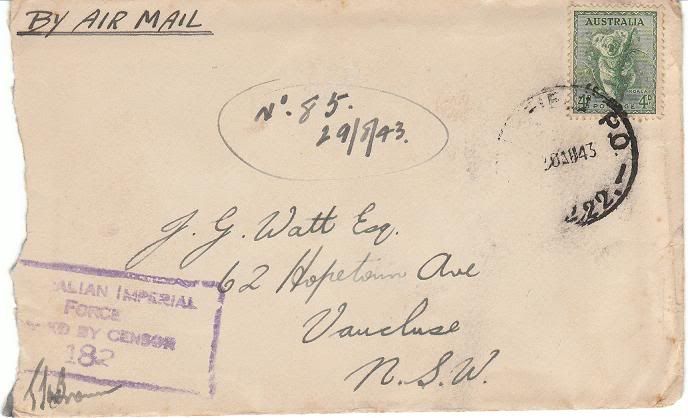 BY AIR MAIL
AUSTRALIA
KOALA
4D POSTAGE 4D
No. 85.
29/8/43.
43
22.-
J. G. Watt Esq.
62 Hopetoun Ave
Vaucluse
N.S.W.
ALIAN IMPERIAL
FORCE
BY CENSOR
182